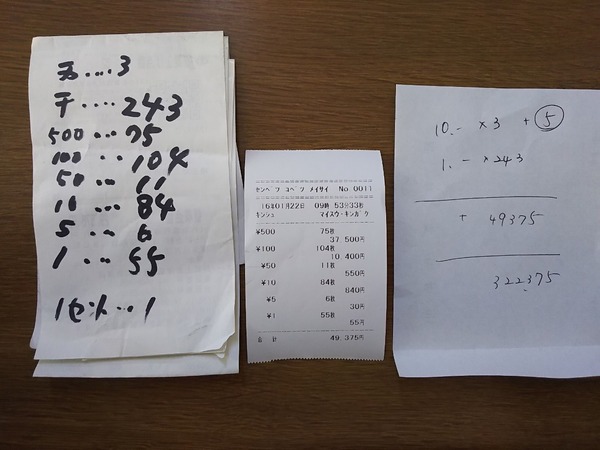 万....3
千....243
500...75
100...104
50...11
10...84
5...6
1...55
1セット...1
センベツ コベツ メイサイ No.0011
16年01月22日 09時 53分33秒
キンシュ マイスウ・キンガク
¥500 75枚
37,500円
¥100 104枚
10,400円
¥50 11枚
550円
¥10 84枚
840円
¥5 6枚
30円
¥1 55枚
55円
合計 49,375円
10.- ×3 + 5
1.- ×243
+ 49375
322375